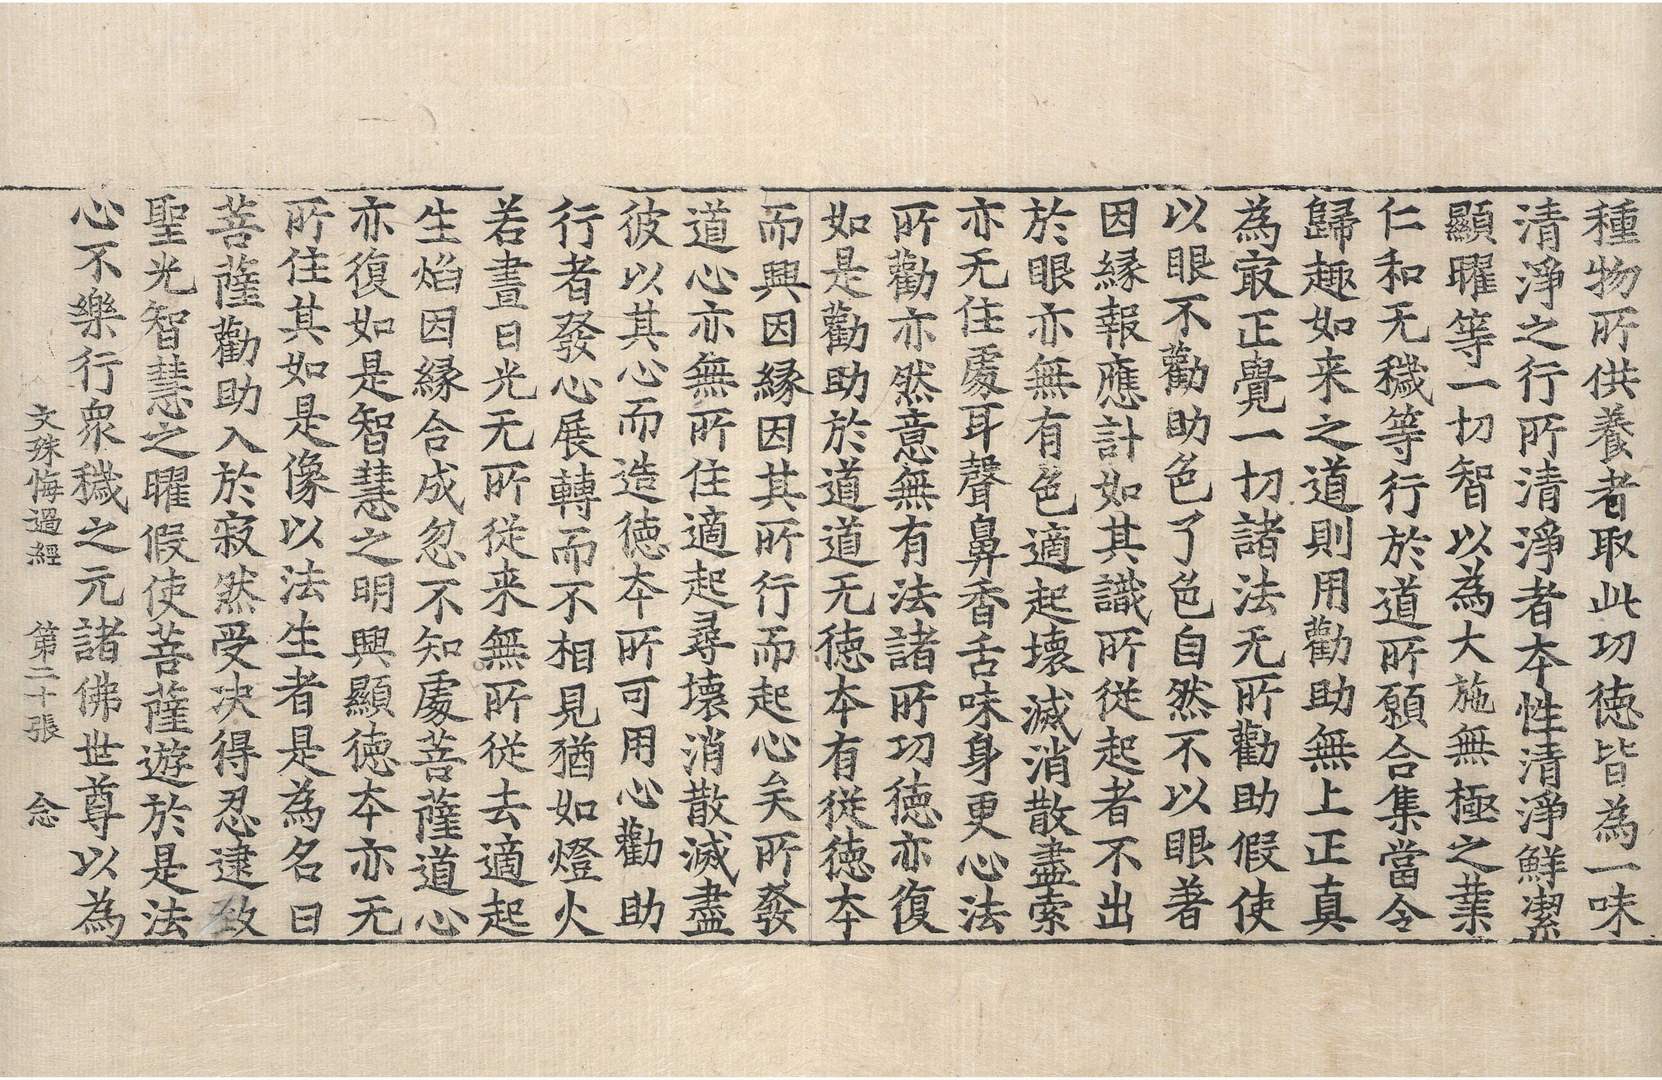 種物所供養者取此功徳皆為一味
清淨之行所清淨者本性清淨鮮潔
顯曜等一切智以為大施無極之業
仁和无穢等行於道所願合集當令
歸趣如来之道則用勸助無上正真
為冣正覺一切諸法无所勸助假使
以眼不勸助色了色自然不以眼著
因縁報應計如其識所從起者不出
於眼亦無有色適起壞滅消散盡索
亦无住處耳聲鼻香舌味身更心法
所勸亦然意無有法諸所功徳亦復
如是勸助於道道无徳本有從徳本
而興因縁因其所行而起心矣所發
道心亦無所住適起尋壞消散滅盡
彼以其心而造徳本所可用心勸助
行者發心展轉而不相見猶如燈火
若晝日光无所從来無所從去適起
生焰因縁合成忽不知處菩薩道心
亦復如是智慧之明興顯徳本亦无
所住其如是像以法生者是為名曰
菩薩勸助入於寂然受決得忍逮致
聖光智慧之曜假使菩薩遊於是法
心不樂行衆穢之元諸佛世尊以為
文殊悔過經　第二十張　念